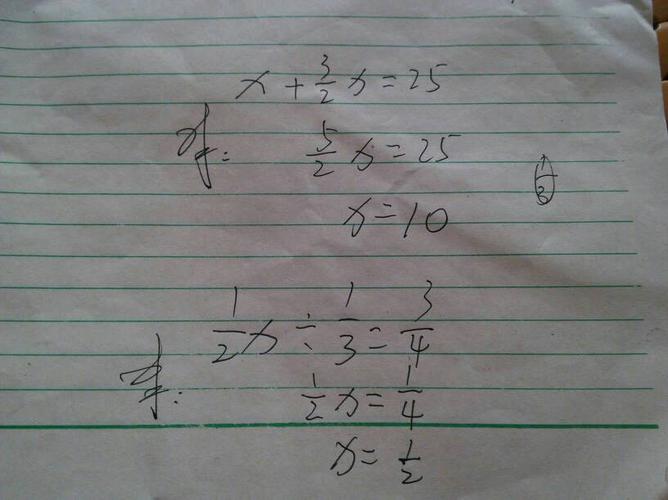 x + 3/2 x = 25
解: 5/2 x = 25
x = 10
1/2 x ÷ 1/3 = 3/4
解: 1/2 x = 1/4
x = 1/2